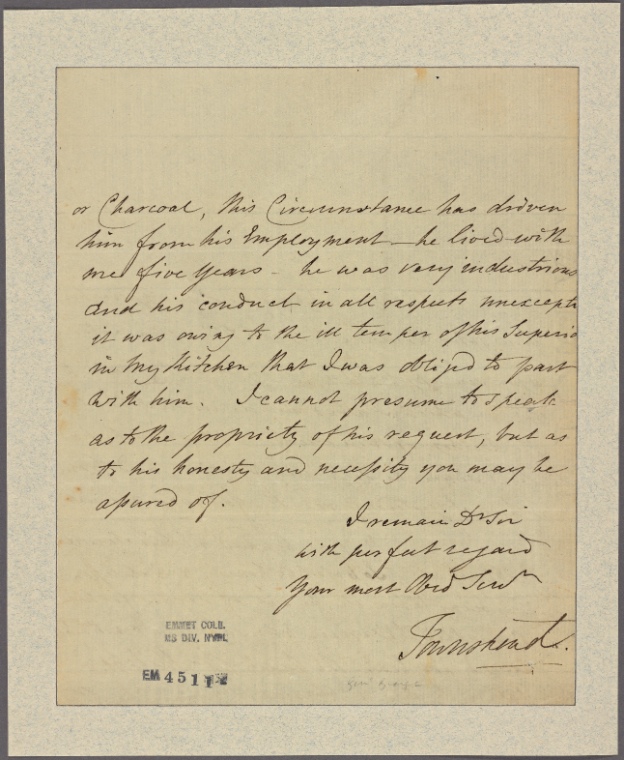 or Charcoal, this Circumstance has driven
him from his Employment – he lived with
me five years – he was very industrious
and his conduct in all respects unexcepti
it was owing to the ill temper of his Superio
in my Kitchen that I was obliged to part
with him. I cannot presume to speak
as to the propriety of his request, but as
to his honesty and necessity you may be
assured of.
I remain Dr Sir
with perfect regard
Your most Obed Servt
Townshend.
EMMET COLL.
MS DIV. NYPL
EM 4511